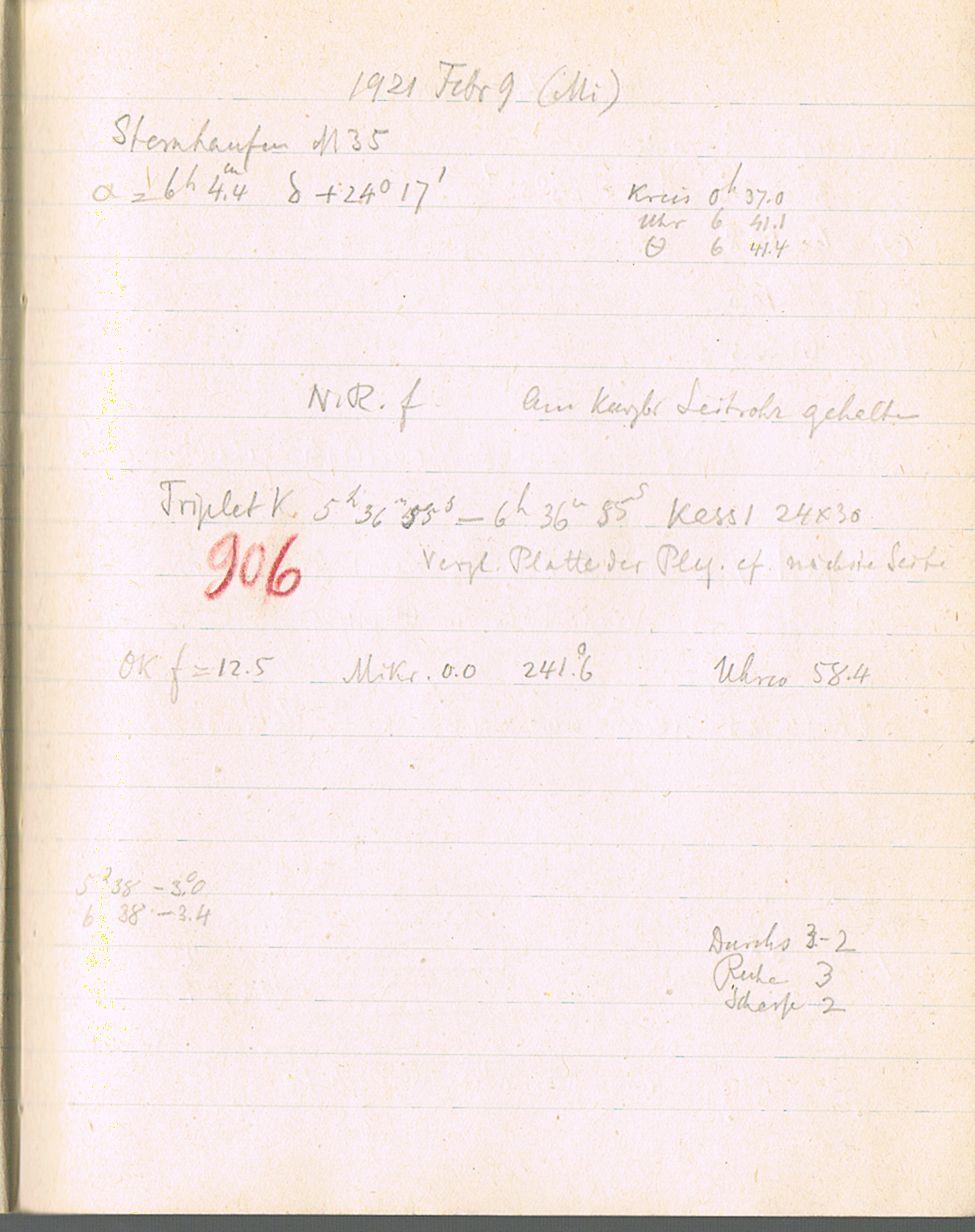 1921 Febr 9 (Mi)
Sternhaufen M 35
α = 6h 4.4m δ +24° 17'
Kreis 0h 37.0
Uhr 6 41.1
Θ 6 41.4
N.R. f. Am Leitrohr gehalten
Triplet K. 5h 36m 55s — 6h 36m 55s Kass 1 24x30
906
Vergl. Platte der Plej. cf. nächste Seite
OK f = 12.5 Mikr. 0.0 241.°6 Uhren 58.4
5h 38 -3.°0
6 38 -3.4
Durchs 3-2
Ruhe 3
Schärfe 2